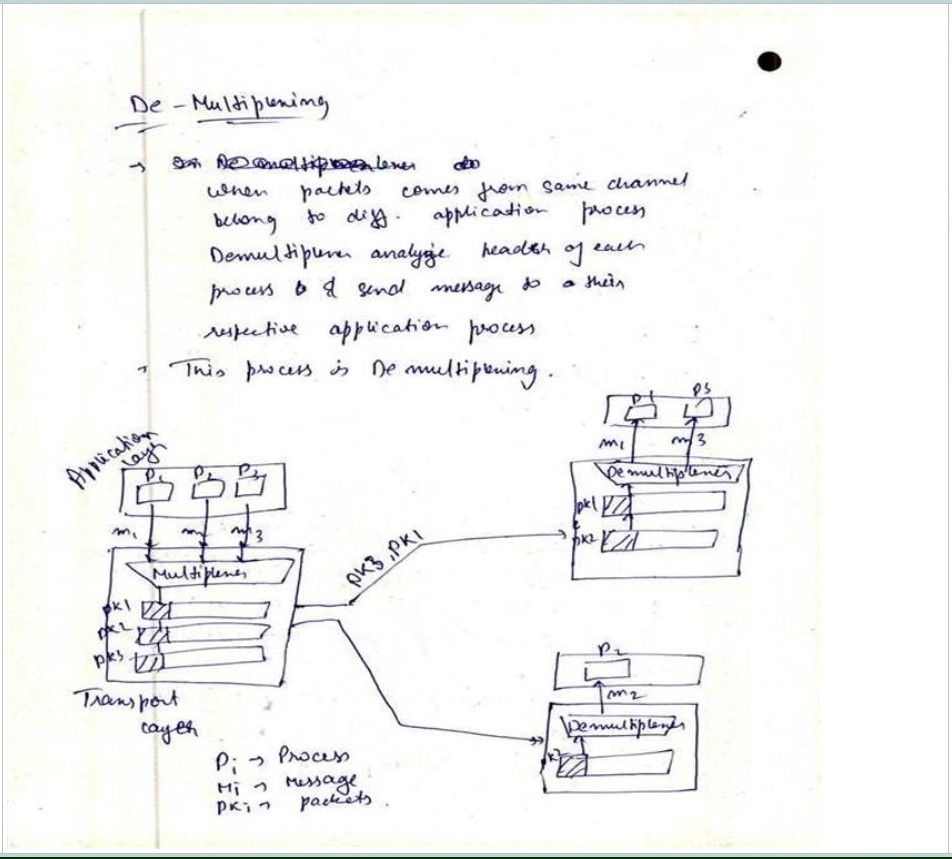 De - Multiplexing
→ when packets comes from same channel
belong to diff. application process
Demultiplexer analyze header of each
process & send message to their
respective application process
→ This process is De multiplexing.
Application
Layer
P1 P2 P3
m1 m2 m3
Multiplexer
pk1
pk2
pk3
Transport
layer
PK3, PK1
P1 P3
m1 m3
Demultiplexer
pk1
pk2
P2
m2
Demultiplexer
Pi → Process
Mi → Message
PKi → packets.